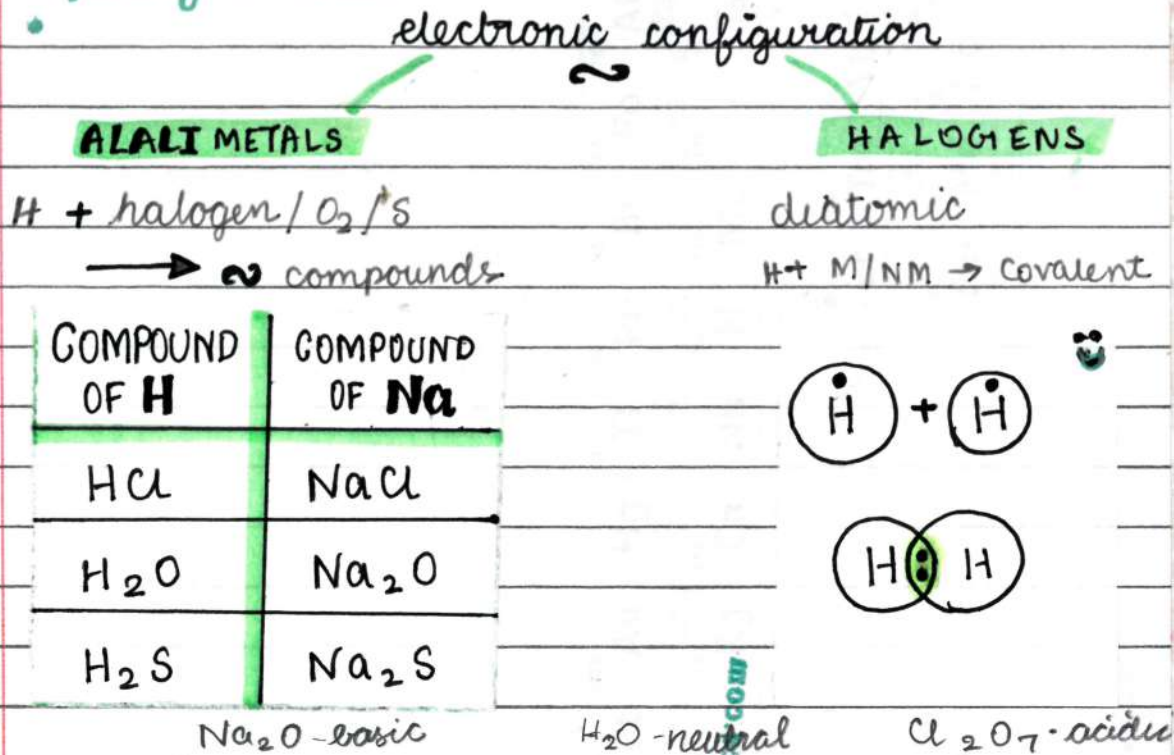 electronic configuration
~
ALALI METALS
HALOGENS
H + halogen / O₂ / S
⟶ ~ compounds
diatomic
H+ M/NM → Covalent
COMPOUND OF H
COMPOUND OF Na
HCl
NaCl
H₂O
Na₂O
H₂S
Na₂S
H + H
H : H
Na₂O - basic
H₂O - neutral
Cl₂O₇ - acidic
com